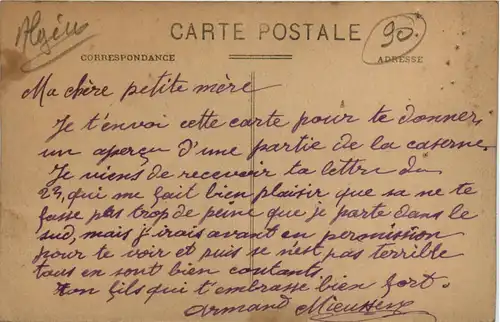 Algérie
CARTE POSTALE
90.
CORRESPONDANCE
ADRESSE
Ma chère petite mère
Je t'envoi cette carte pour te donner,
un aperçu d'une partie de la caserne.
Je viens de recevoir ta lettre du
23, qui me fait bien plaisir que sa ne te
fasse plus trop de peine que je parte dans le
sud, mais j'irais avant en permission
pour te voir et puis se n'est pas terrible
tous en sont bien contants.
ton fils qui t'embrasse bien fort.
Armand